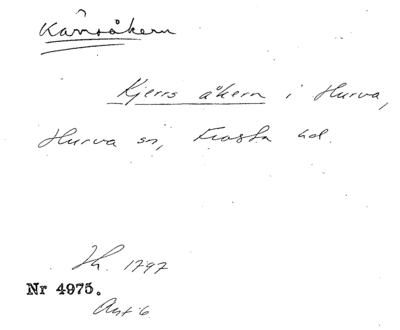 Kärrsåkern
Kjerrs åkern i Hurva,
Hurva sn, Frosta hd.
Sh. 1797
Nr 4975.
Akt 6